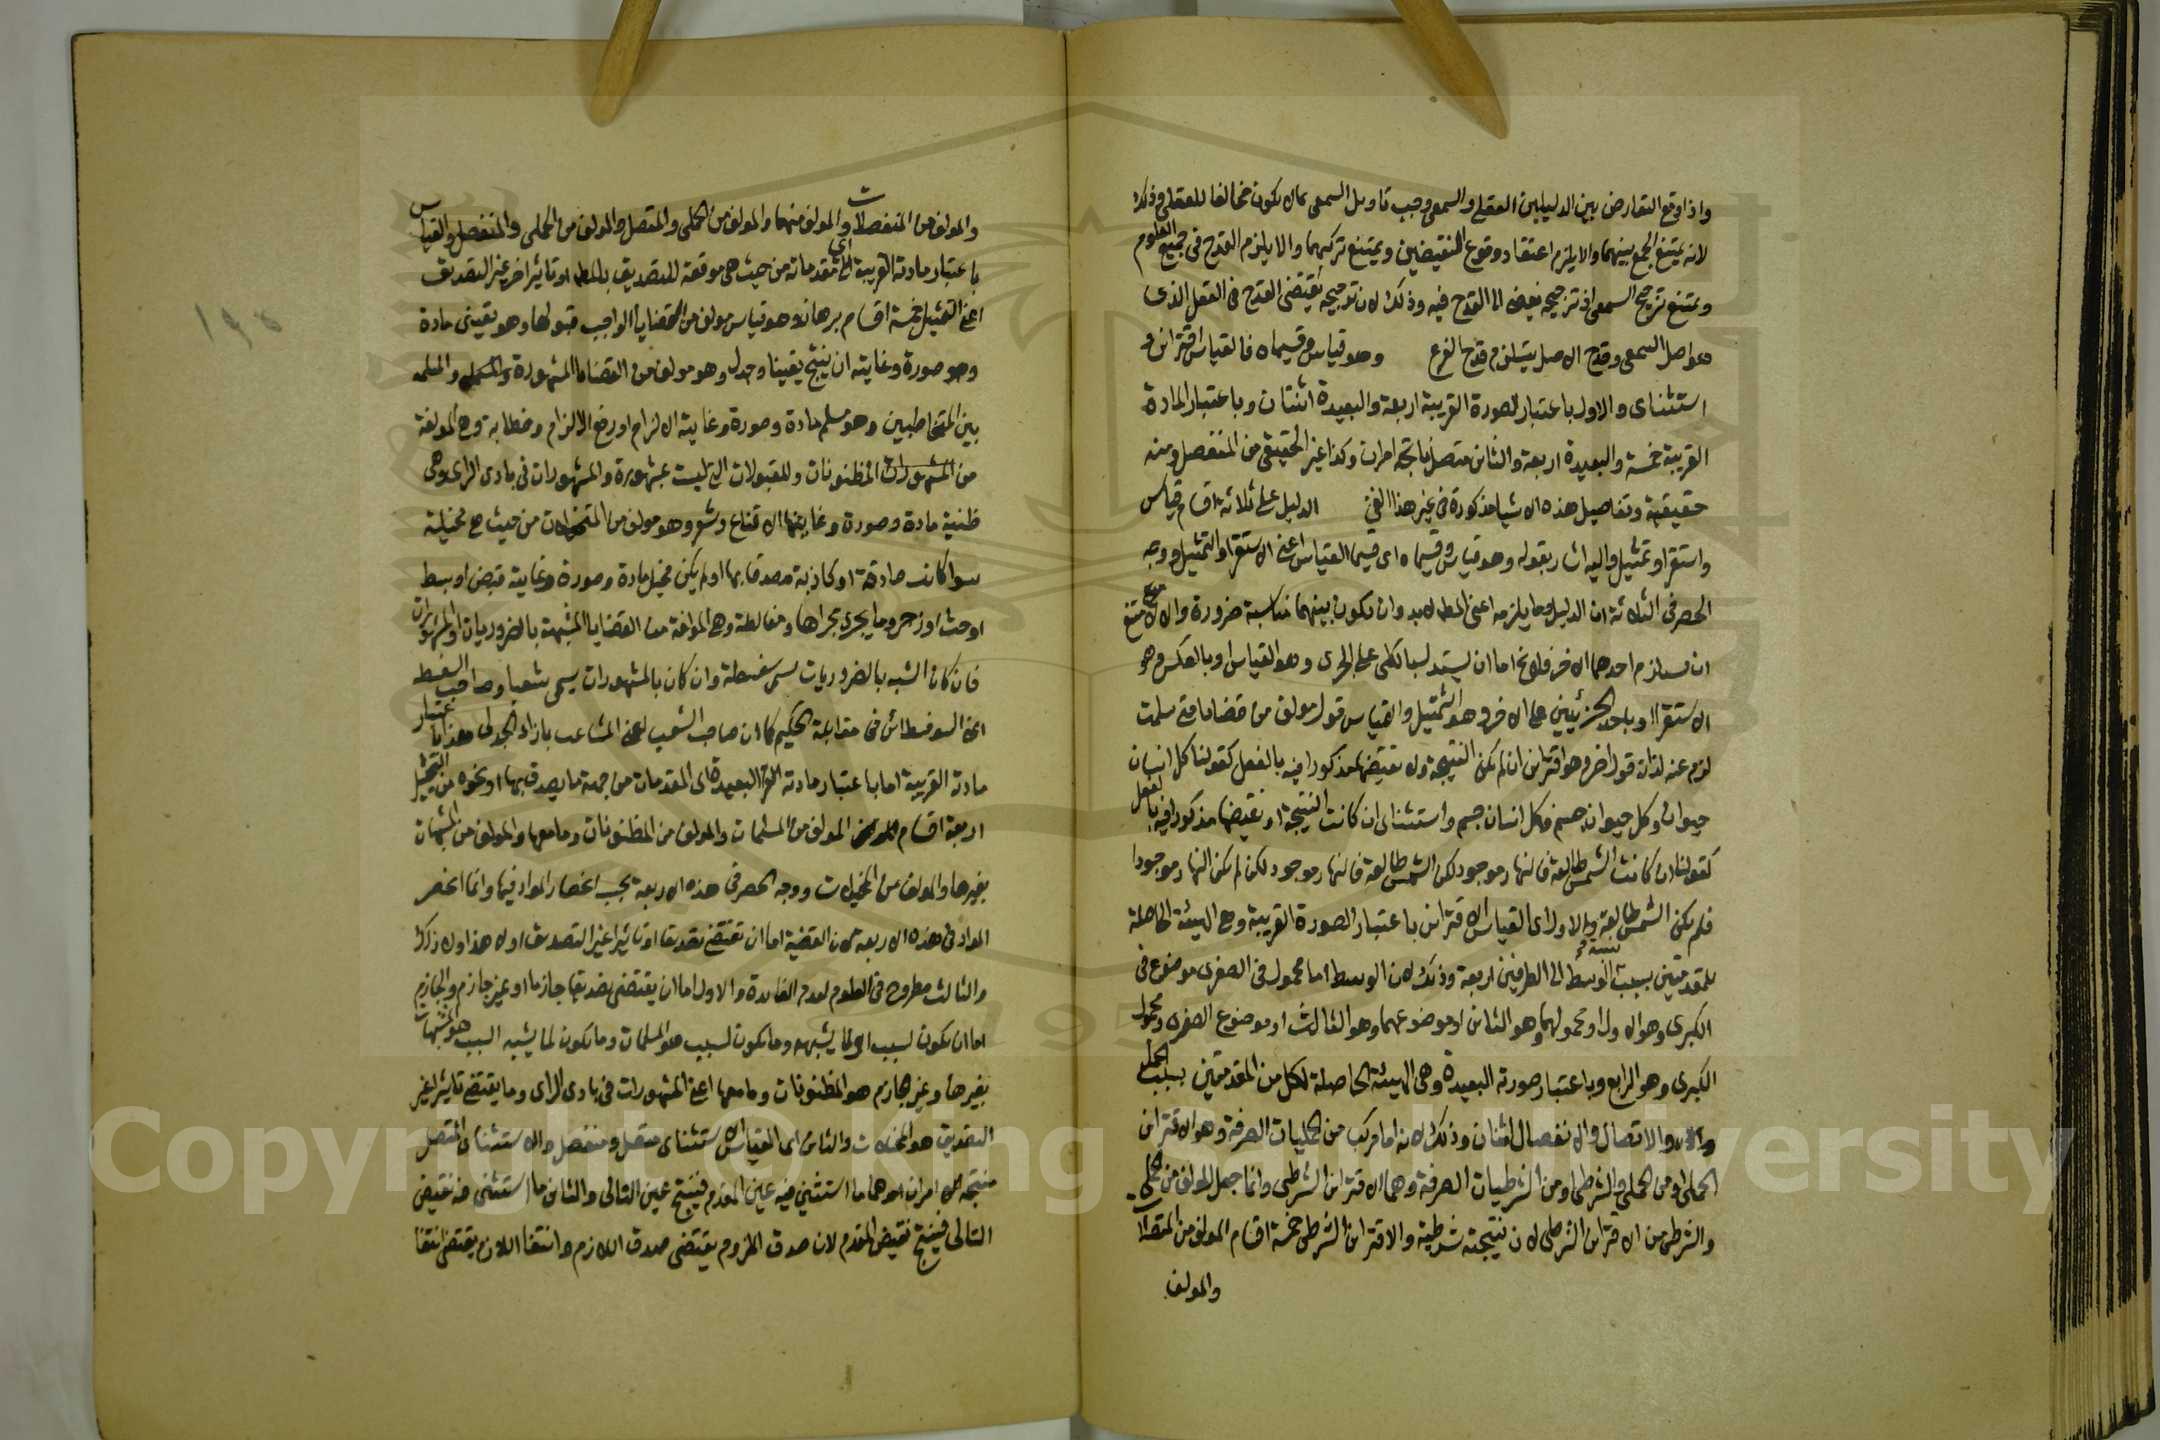 واذا وقع التعارض بين الدليلين العقلى والسمعى وجب تاويل السمعى بما لا يكون مخالفا للعقلى وذلك
لانه يمتنع الجمع بينهما والا يلزم اعتقاد وقوع النقيضين ويمتنع تركهما والا يلزم القدح فى جميع العلوم
ويمتنع ترجيح السمعى اذ ترجيحه يفضى الى القدح فيه وذلك لان ترجيحه يقتضى القدح فى العقل الذى
هو اصل السمعى وقدح الاصل يستلزم قدح الفرع وهو قياس وقسيماه فالقياس اقترانى و
استثنائى والاول باعتبار الصورة القريبة اربعة والبعيدة اثنتان وباعتبار المادة
القريبة خمسة والبعيدة اربعة والثانى متصل ناتجه امران وكذا غير الحقيقى من المنفصل ومنه
حقيقية وتفاصيل هذه الاشيا مذكورة فى غير هذا الفن الدليل على ثلاثة اقسام قياس
واستقرا وتمثيل واليه اشار بقوله وهو قياس وقسيماه اى قسيما القياس اعنى الاستقرا والتمثيل ووجه
الحصر فى الثلاثة ان الدليل وما يلزمه اعنى المط لا بد وان يكون بينهما مناسبة ضرورة والا لامتنع
ان يستلزم احدهما الاخر فلا يخ اما ان يستدل بالكلى على الجزئى وهو القياس او بالعكس وهو
الاستقرا او باحد الجزئيين على الاخر وهو التمثيل والقياس قول مولف من قضايا متى سلمت
لزم عنه لذاته قول اخر وهو اقترانى ان لم تكن النتيجة ولا نقيضها مذكورا فيه بالفعل كقولنا كل انسان
حيوان وكل حيوان جسم فكل انسان جسم واستثنائى ان كانت النتيجة او نقيضها مذكورا فيه بالفعل
كقولنا ان كانت الشمس طالعة فالنهار موجود لكن الشمس طالعة فالنهار موجود لكن لم يكن النهار موجودا
فلم تكن الشمس طالعة والاول اى القياس الاقترانى باعتبار الصورة القريبة وهى الهيئة الحاصلة
للمقدمتين بسبب نسبة الوسط الى الطرفين اربعة وذلك لان الوسط اما محمول فى الصغرى موضوع فى
الكبرى وهو الاول او محمولهما وهو الثانى او موضوعهما وهو الثالث او موضوع الصغرى ومحمول
الكبرى وهو الرابع وباعتبار صورته البعيدة وهى الهيئة الحاصلة لكل من المقدمتين بسبب الحمل
والاتصال والانفصال اثنتان وذلك لانه اما مركب من الحمليات الصرفة وهو الاقترانى
الحملى او من الحملى والشرطى او من الشرطيات الصرفة وهما الاقترانى الشرطى وانما جعل المولف من الحملى
والشرطى من الاقترانى الشرطى لان نتيجته شرطية والاقترانى الشرطى خمسة اقسام المولف من المتصلات
والمولف
والمولف من المنفصلات والمولف منهما والمولف من الحملى والمتصل والمولف من الحملى والمنفصل والقياس
باعتبار مادته القريبة اى مقدماته من حيث هى موقعة للتصديق بالمط او تاثير اخر غير التصديق
اعنى التخييل خمسة اقسام برهان وهو قياس مولف من القضايا الواجب قبولها وهو يقينى مادة
وهو صورة وغايته ان ينتج يقينا وجدل وهو مولف من القضايا المشهورة والمسلمة
بين المتخاطبين وهو مسلم مادة وصورة وغايته الالزام او رفع الالزام وخطابة وهى المولفة
من المظنونات والمقبولات التى ليست بمشهورة والمشهورات فى بادى الراى وهى
ظنية مادة وصورة وغايتها الاقناع وشعر وهو مولف من المتخيلات من حيث هى مخيلة
سوا كانت صادقة او كاذبة مصدقا بها او لم يكن مخيل مادة وصورة وغايته قبض او بسط
او حث او زجر وما يجرى مجراها ومغالطة وهى المولفة من القضايا المشبهة بالضروريات او المشهورات
فان كان الشبه بالضروريات يسمى سفسطة وان كان بالمشهورات يسمى شغبا وصاحب السفسطة
اى السوفسطائى فى مقابلة الحكيم كما ان صاحب الشغب اعنى المشاغب بازاء الجدلى هذا باعتبار
مادته القريبة اما باعتبار مادته البعيدة اى المقدمات من جهة ما يصدق بها او نحوه من التخييل
اربعة اقسام المولف من المسلمات والمولف من المظنونات وما معها والمولف من المشبهات
بغيرها والمولف من المخيلات ووجه الحصر فى هذه الاربعة بحسب انحصار المواد فيها وانما انحصر
المواد فى هذه الاربعة لان القضية اما ان تقتضى تصديقا او تاثيرا غير التصديق او لا هذا ولا ذلك
والثالث مطروح فى العلوم لعدم الفائدة والاول اما ان يقتضى تصديقا جازما او غير جازم والجازم
اما ان يكون لسبب او لما يشبهه وما يكون لسبب هو المسلمات وما يكون لما يشبه السبب هو المشبهات
بغيرها وغير جازم هو المظنونات وما معها اعنى المشهورات فى بادى الراى وما يقتضى تاثيرا غير
التصديق هو المخيلات والثانى اى القياس الاستثنائى متصل ومنفصل والاستثنائى المتصل
منتجه امران احدهما ما استثنى فيه عين المقدم فينتج عين التالى والثانى ما استثنى منه نقيض
التالى فينتج نقيض المقدم لان صدق الملزوم يقتضى صدق اللازم وانتفا اللازم يقتضى انتفا
Copyright © King Saud University
1957